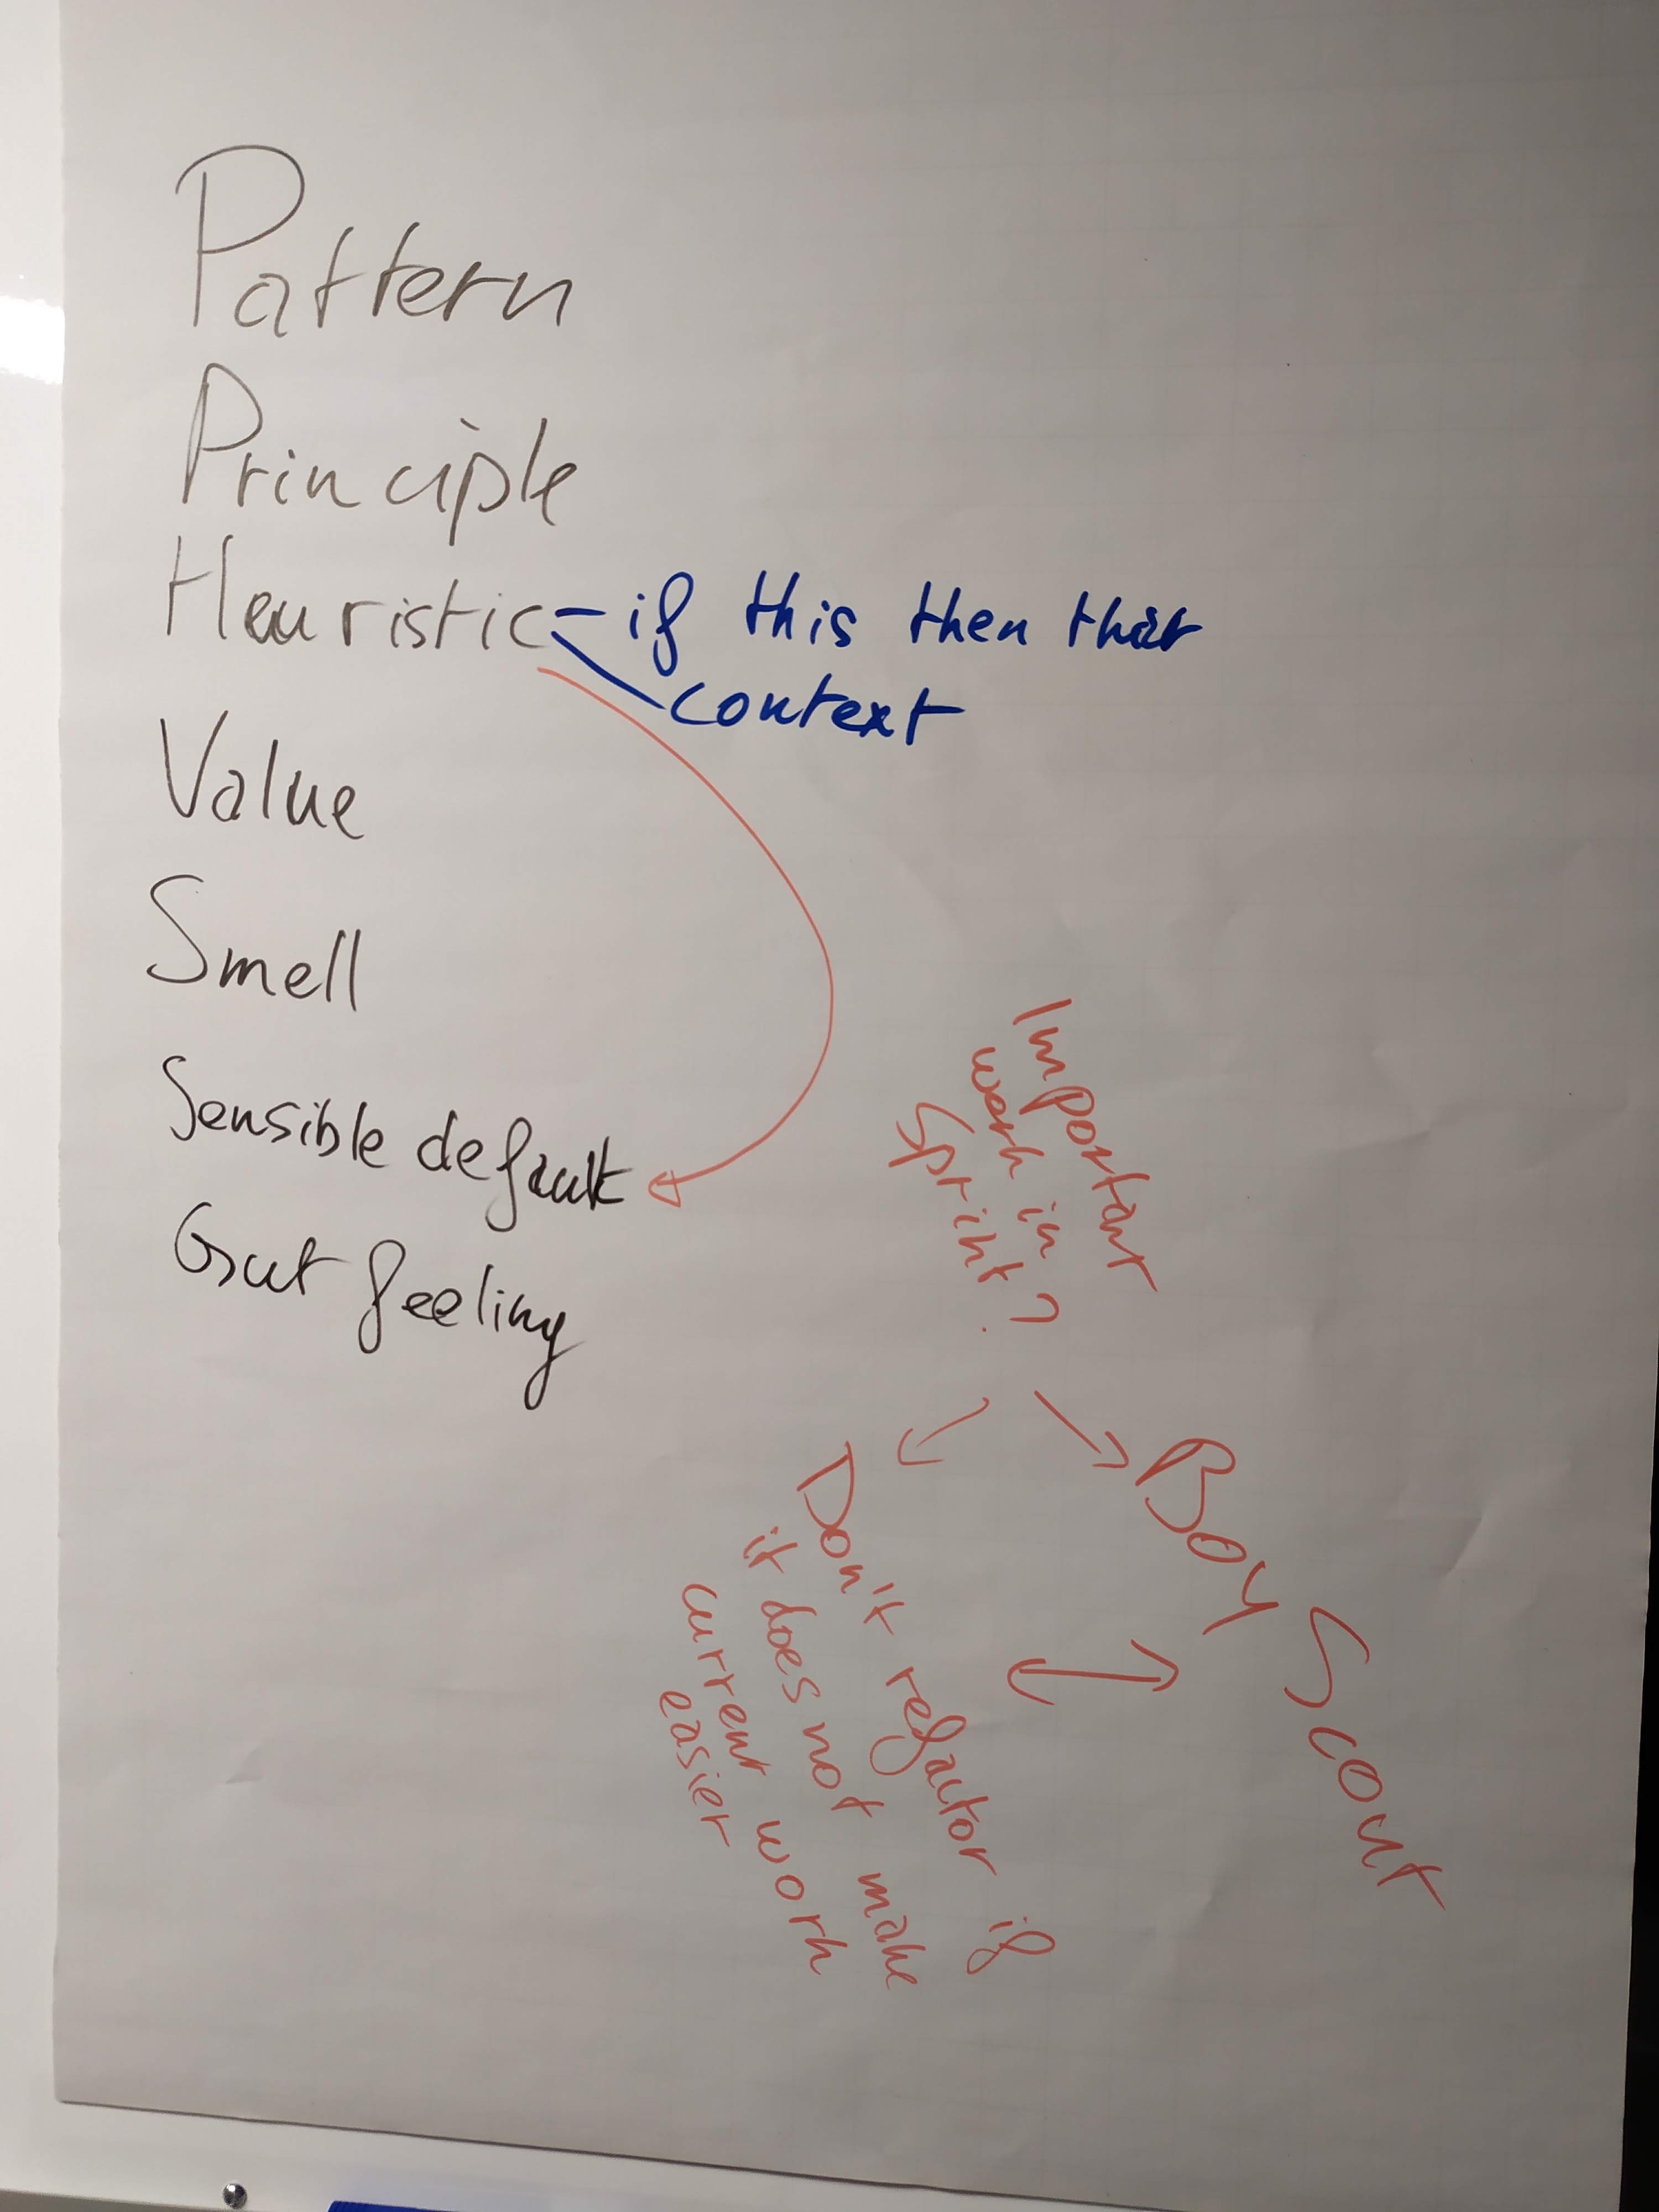 Pattern
Principle
Heuristic - if this then that
context
Value
Smell
Sensible default
Gut feeling
Important
work in
Sprint?
Boy Scout
Don't refactor if
it does not make
current work
easier